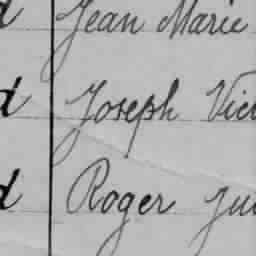 d Jean Marie
d Joseph Vic
d Roger Ju